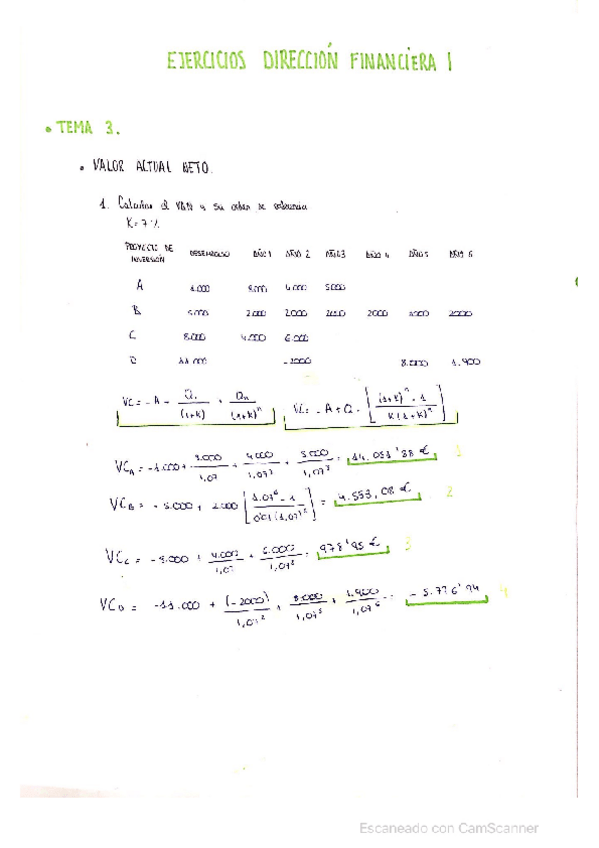 EJERCICIOS DIRECCIÓN FINANCIERA I
• TEMA 3.
• VALOR ACTUAL NETO.
1. Calcular el VAN y su orden de
K = 7%
PROYECTO DE INVERSIÓN DESEMBOLSO AÑO 1 AÑO 2 AÑO 3 AÑO 4 AÑO 5 AÑO 6
A 1.000 4.000 5.000
B 5.000 2.000 2000 2000 2000 2000
C 8.000 4.000 6.000
D 11.000 -2000 8.000 1.900
VC = -A + Q₁/(1+k) + Qn/(1+k)^n VC = -A + Q · [(1+k)^n - 1 / K(1+k)^n]
VC_A = -1.000 + /1,07 + 4000/1,07² + 5000/1,07³ = €  1
VC_B = -5.000 + 2.000 [1.07^6 - 1 / ] = 4.533,08 € 2
VC_C = -8.000 + 4.000/1,07 + 6.000/1,07² = 978'95 € 3
VC_D = -11.000 + (-2000)/1,07² + 8.000/1,07^5 + 1.900/1,07^6 = -5.776'94 4
Escaneado con CamScanner